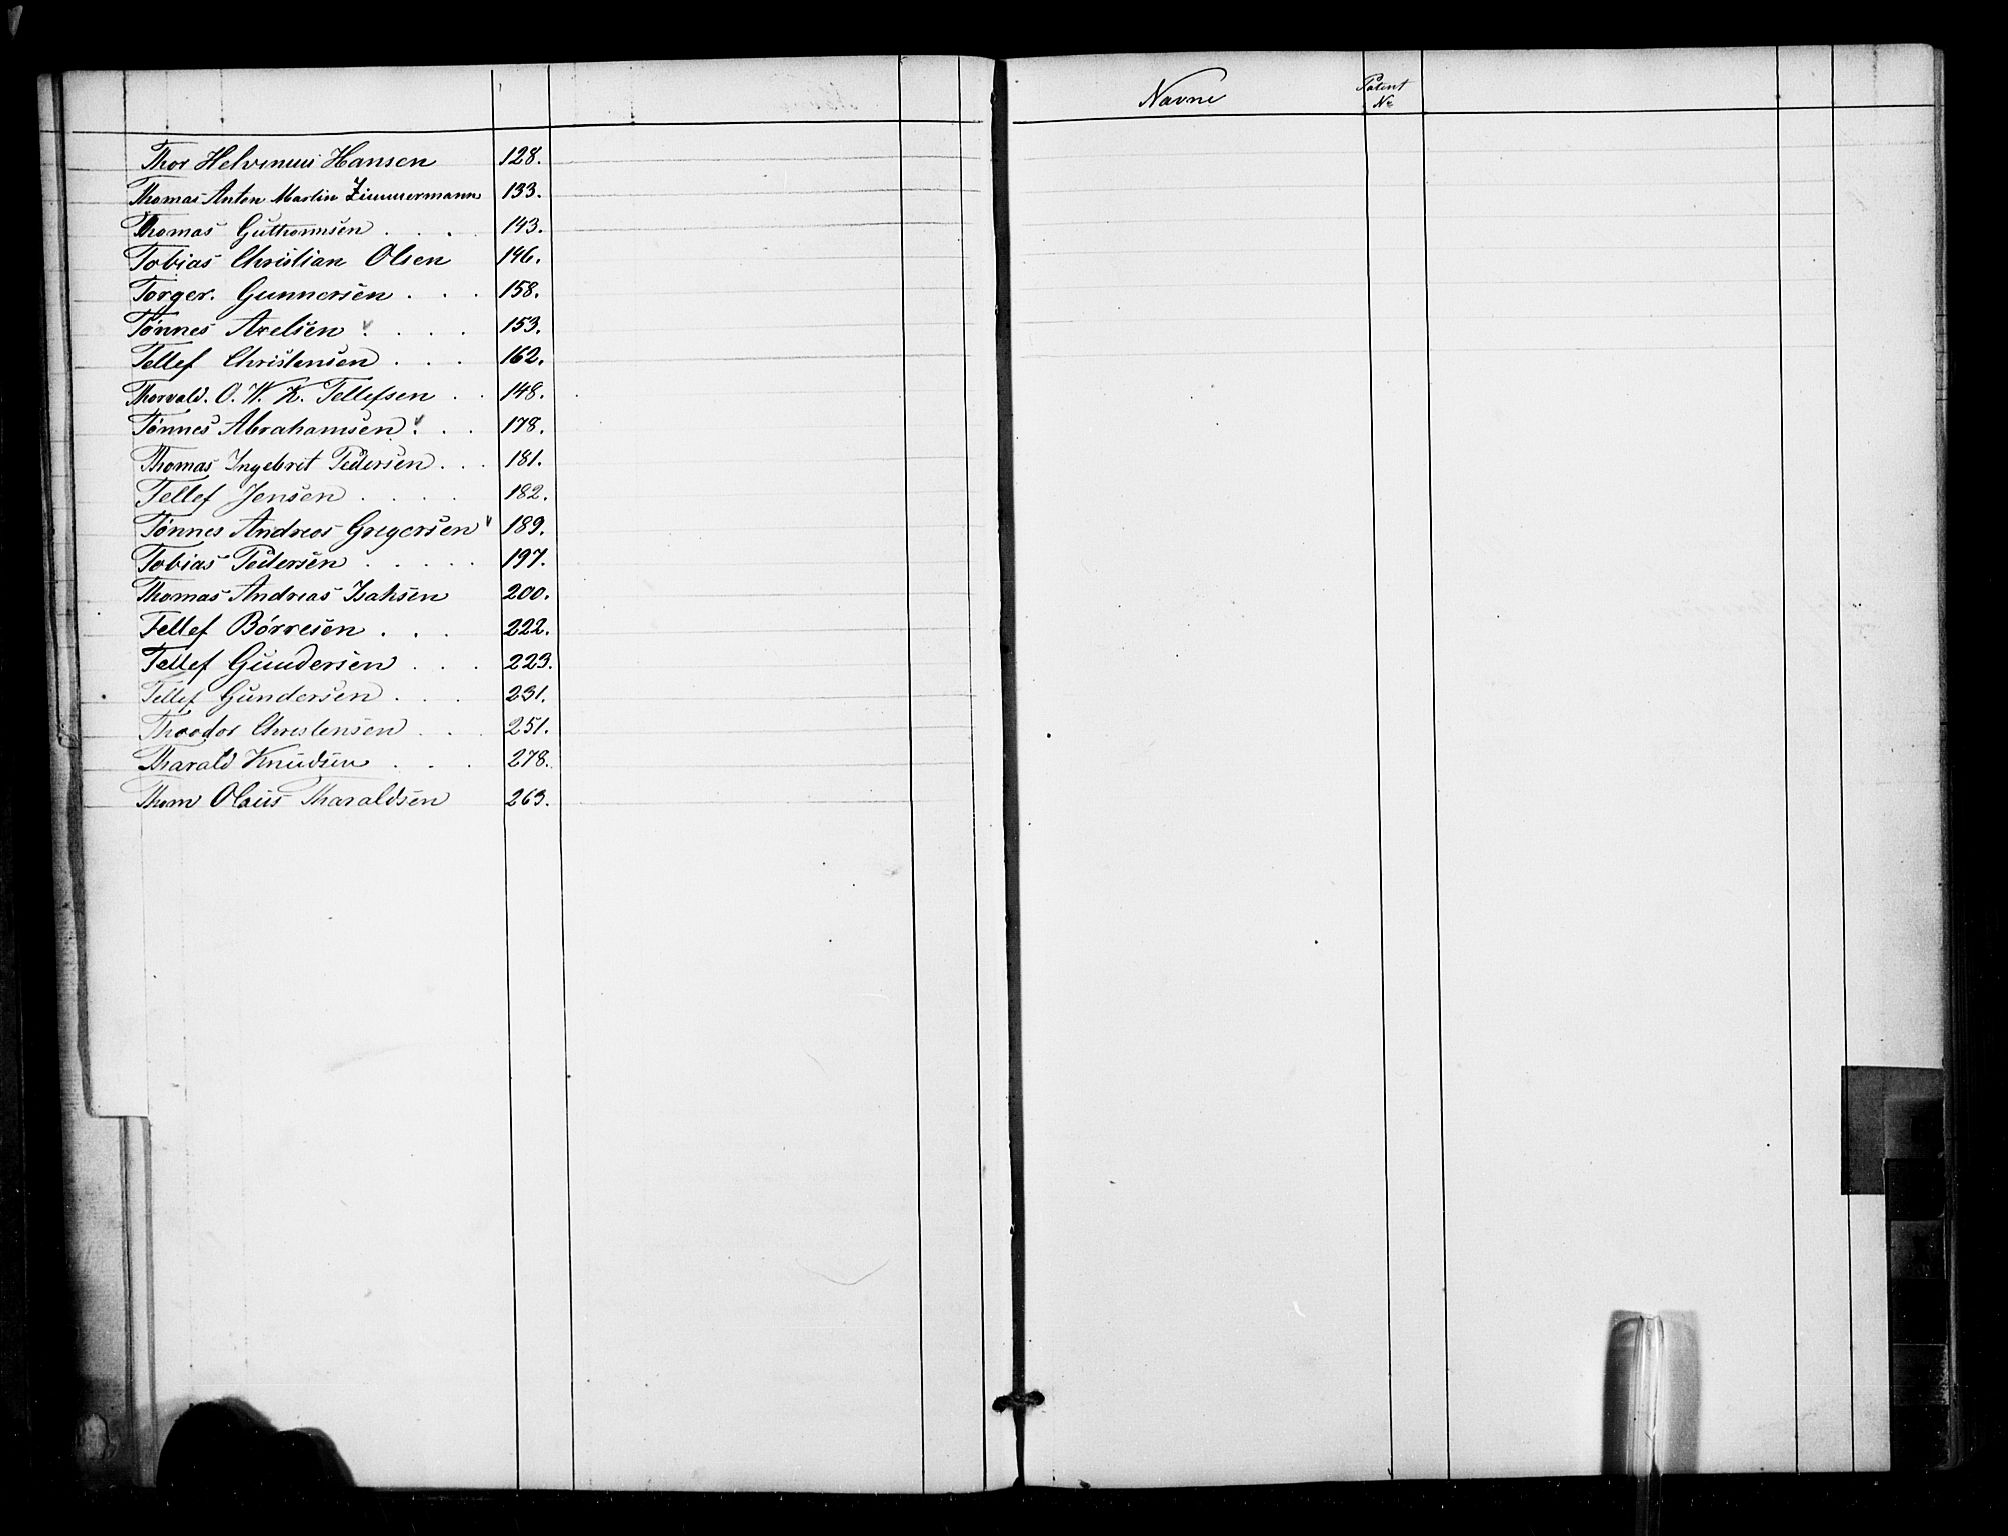 Thor Helvinius Hansen 128.
Thomas Anton Martin Zimmermann 133.
Thomas Guthormsen . . . 143.
Tobias Christian Olsen 146.
Torger. Gunnersen . . . 158.
Tønnes Axelsen v . . . . 153.
Tellef Christensen . . . 162.
Thorvald. O. W. K. Tellefsen . . 148.
Tønnes Abrahamsen v . . . 178.
Thomas Ingebret Pedersen . . . 181.
Tellef Jensen . . . . 182.
Tønnes Andreas Gregersen v 189.
Tobias Pedersen . . . . . 197.
Thomas Andreas Isaksen 200.
Tellef Börresen . . . 222.
Tellef Gundersen . . . 223.
Tellef Gundersen . . . 231.
Theodor Christensen . . . 251.
Tharald Knudsen . . . 278.
Thom Olaus Tharaldsen 263.
Navne
Patent
No